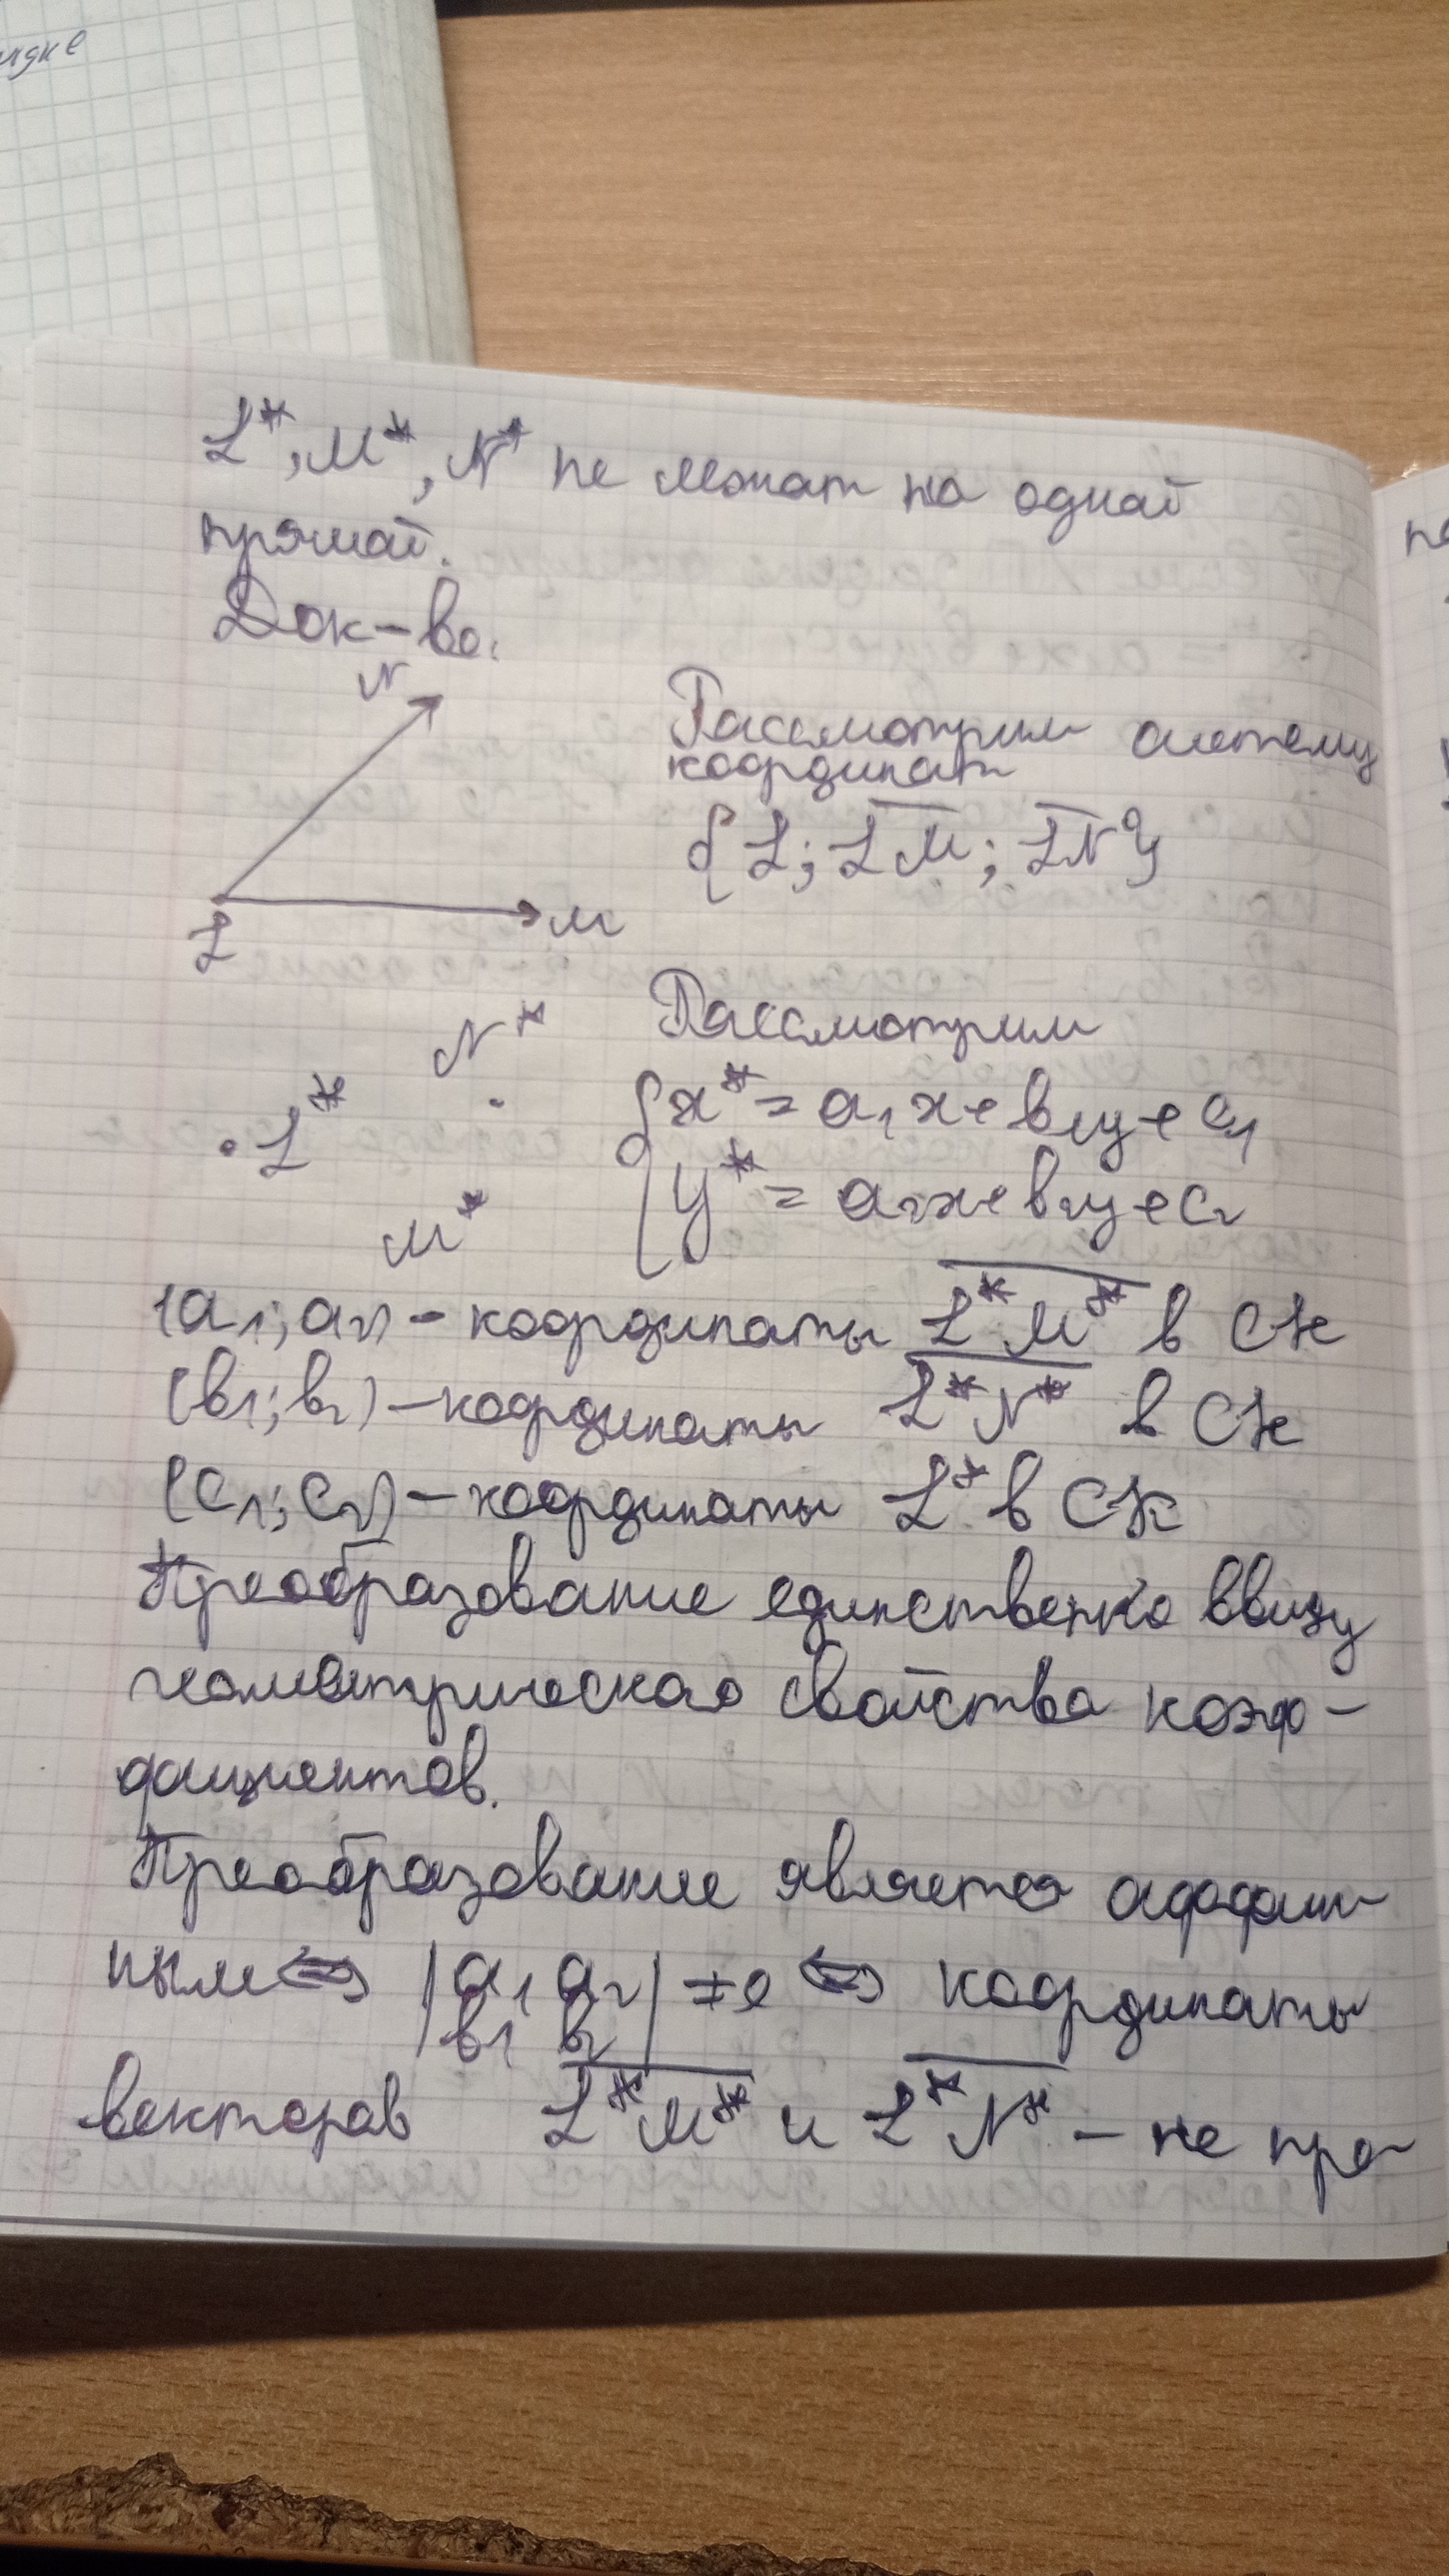 L*, M*, N* не лежат на одной
прямой.
Док-во.
N
Рассмотрим систему
координат
{L; LM; LN}
L
M
N*
Рассмотрим
L*
{x* = a₁x + b₁y + c₁
M*
{y* = a₂x + b₂y + c₂
(a₁; a₂) - координаты L*M* в СК
(b₁; b₂) - координаты L*N* в СК
(c₁; c₂) - координаты L* в СК
Преобразование единственно ввиду
геометрического свойства коэф-
фициентов.
Преобразование является аффин-
ным ⇔ |a₁ a₂| ≠ 0 ⇔ координаты
|b₁ b₂|
векторов L*M* и L*N* - не про-